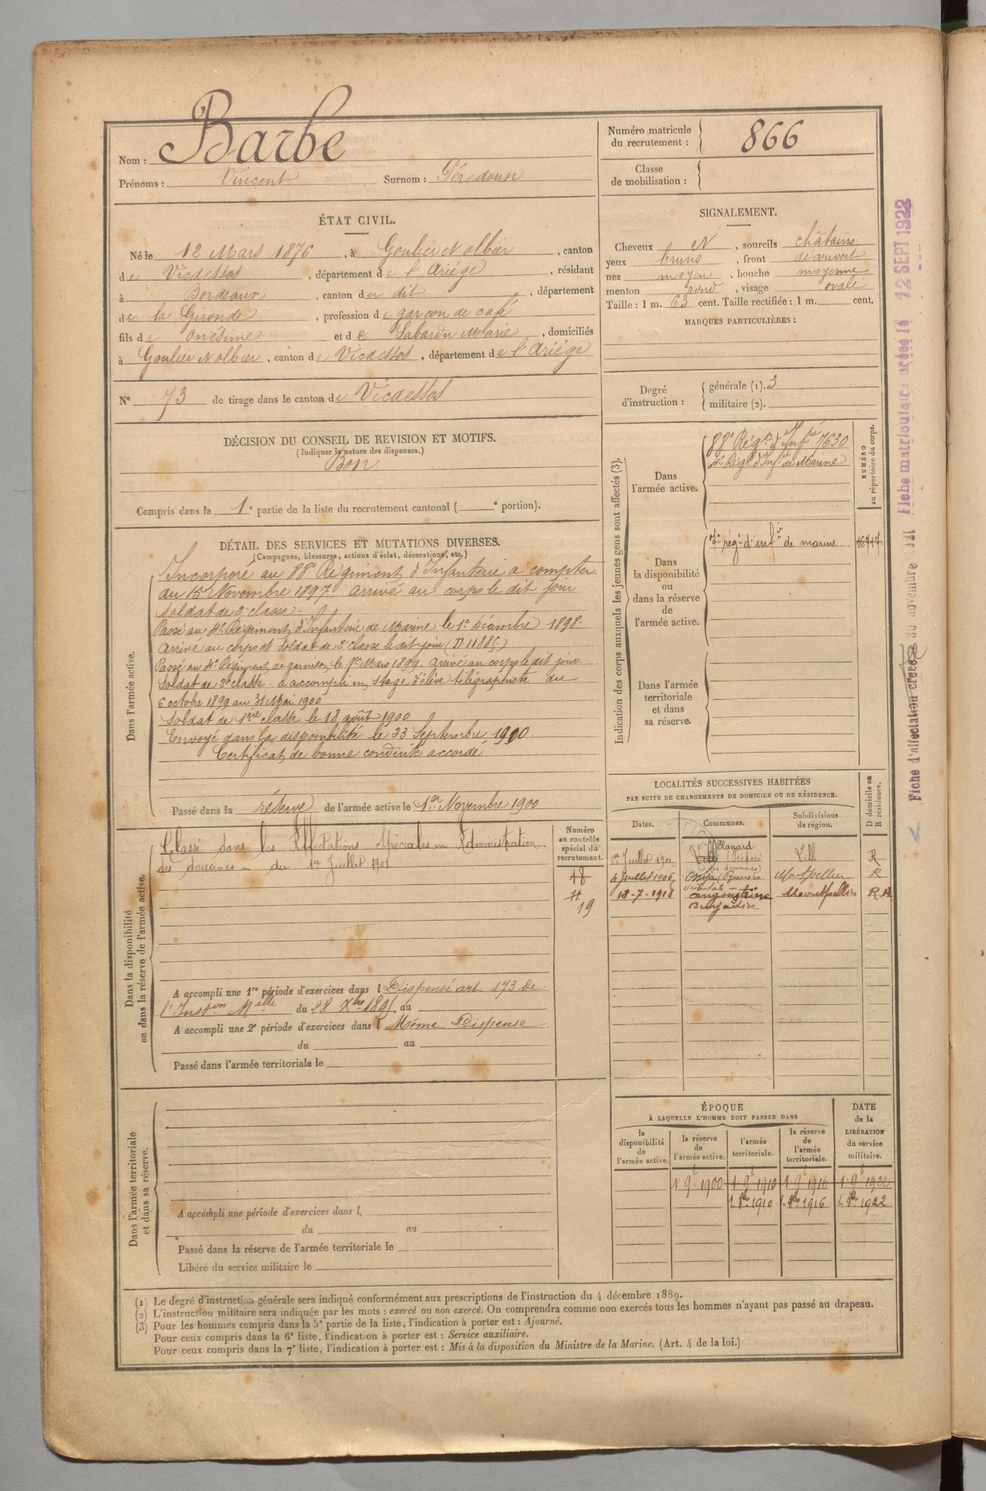 Nom : Barbe
Prénoms : Vincent Surnom :
Numéro matricule du recrutement : 866
Classe de mobilisation :
ÉTAT CIVIL.
Né le 12 Mars 1876, à Goulier et olbier, canton
de Vicdessos, département de l'Ariège, résidant
à Bordeaux, canton du dit, département
de la Gironde, profession de garçon de café
fils de Onésime et de Marie, domiciliés
à Goulier et olbier, canton de Vicdessos, département de l'Ariège
N° 73 de tirage dans le canton de Vicdessos
SIGNALEMENT.
Cheveux et, sourcils châtains
yeux bruns, front découvert
nez moyen, bouche moyenne
menton rond, visage ovale
Taille : 1 m. 63 cent. Taille rectifiée : 1 m. cent.
MARQUES PARTICULIÈRES :
Degré d'instruction : générale (1). 3
militaire (2).
DÉCISION DU CONSEIL DE REVISION ET MOTIFS.
(Indiquer la nature des dispenses.)
Bon
Compris dans la 1e partie de la liste du recrutement cantonal ( e portion).
DÉTAIL DES SERVICES ET MUTATIONS DIVERSES.
(Campagnes, blessures, actions d'éclat, décorations, etc.)
Dans l'armée active.
Incorporé au 88e Régiment d'Infanterie à compter
du 15 Novembre 1897 arrivé au corps le dit jour
Soldat de 2e classe.
Passé au Régiment d'Infanterie de Marine le 1er Décembre 1898
Arrivé au corps et soldat de 2e classe le dit jour
Passé au Régiment de le 1er Mars 1899 arrivé au corps le dit jour
Soldat de 2e classe a accompli un stage d'élève télégraphiste du
6 octobre 1899 au 31 Mai 1900
Soldat de 1ère classe le 18 août 1900
Envoyé dans la disponibilité le 23 Septembre 1900
Certificat de bonne conduite accordé
Passé dans la réserve de l'armée active le 1er Novembre 1900
Indication des corps auxquels les jeunes gens sont affectés (3).
NUMÉRO au répertoire du corps.
Dans l'armée active.
88e Régt d'Infie 7630
Régt d'Infie de Marine
Dans la disponibilité ou dans la réserve de l'armée active.
régt d'infie de marine
Dans l'armée territoriale et dans sa réserve.
LOCALITÉS SUCCESSIVES HABITÉES
PAR SUITE DE CHANGEMENTS DE DOMICILE OU DE RÉSIDENCE.
Dates. Communes. Subdivisions de région. D domicile ou R résidence.
1er Juillet 1901 Lille R
4 Juillet 1906 Osséja (Pyrénées Orientales) Montpellier R
18-7-1918 angoustrine Montpellier R
Dans la disponibilité ou dans la réserve de l'armée active.
Classé dans les Affectations Spéciales Administration
des douanes du 1er Juillet 1901
Numéro au contrôle spécial du recrutement.
48
19
A accompli une 1re période d'exercices dans l Dispensé art 173 de
l'Inston Mlle du 28 Xbre 1895 au
A accompli une 2e période d'exercices dans l Même Dispense
du au
Passé dans l'armée territoriale le
Dans l'armée territoriale et dans sa réserve.
A accompli une période d'exercices dans l
du au
Passé dans la réserve de l'armée territoriale le
Libéré du service militaire le
ÉPOQUE
À LAQUELLE L'HOMME DOIT PASSER DANS
DATE de la LIBÉRATION du service militaire.
la disponibilité de l'armée active. la réserve de l'armée active. l'armée territoriale. la réserve de l'armée territoriale.
1 9bre 1900 1 9bre 1910 1 9bre 1916 1 9bre 1922
1910 1916 1922
(1) Le degré d'instruction générale sera indiqué conformément aux prescriptions de l'instruction du 4 décembre 1889.
(2) L'instruction militaire sera indiquée par les mots : exercé ou non exercé. On comprendra comme non exercés tous les hommes n'ayant pas passé au drapeau.
(3) Pour les hommes compris dans la 5e partie de la liste, l'indication à porter est : Ajourné.
Pour ceux compris dans la 6e liste, l'indication à porter est : Service auxiliaire.
Pour ceux compris dans la 7e liste, l'indication à porter est : Mis à la disposition du Ministre de la Marine. (Art. 4 de la loi.)
Fiche matriculaire créée le 12 SEPT 1922
Fiche d'affectation créée le 30 novembre